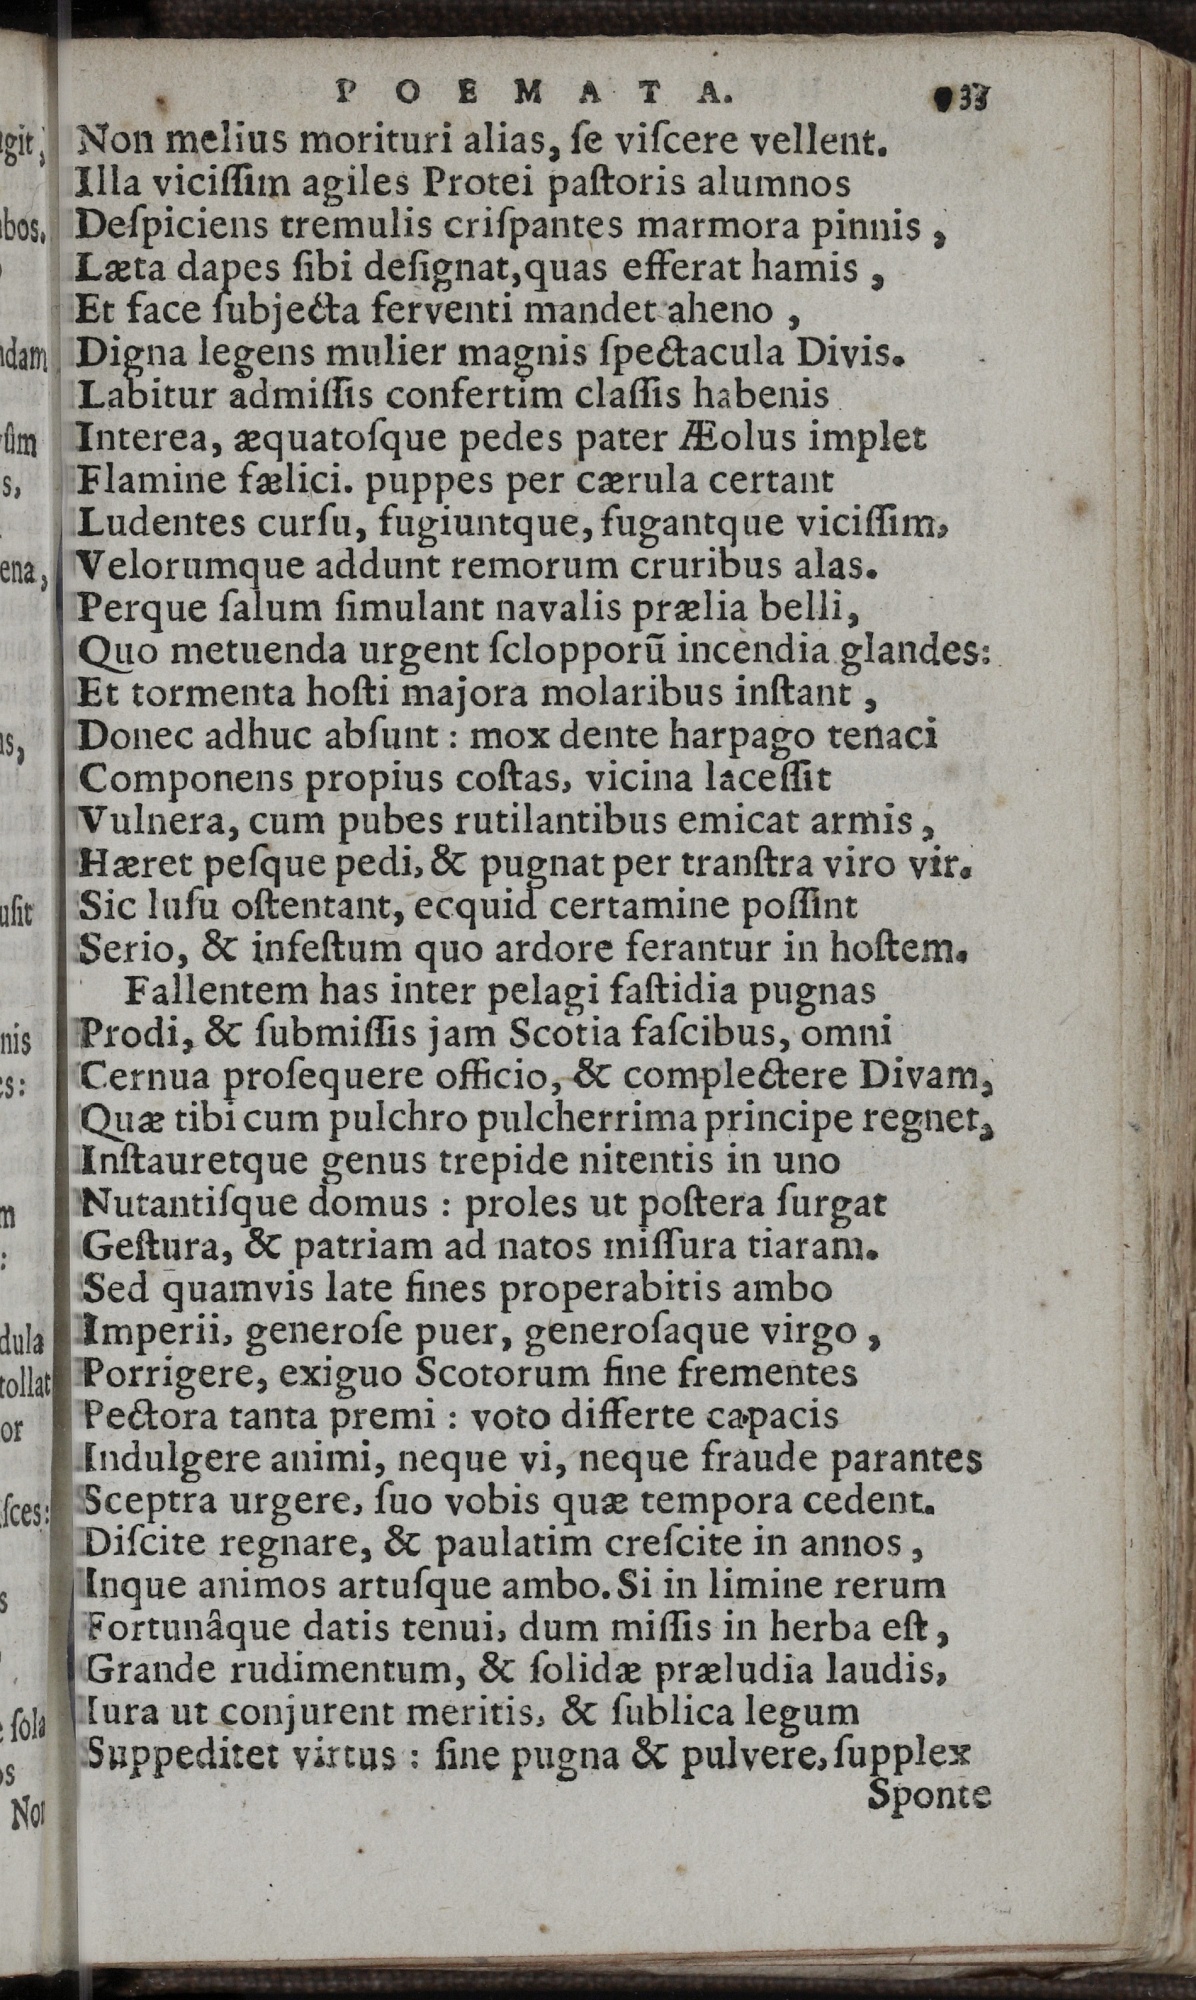 POEMATA. 33
Non melius morituri alias, ſe viſcere vellent.
Illa viciſſim agiles Protei paſtoris alumnos
Deſpiciens tremulis criſpantes marmora pinnis,
Læta dapes ſibi deſignat, quas efferat hamis,
Et face ſubjecta ferventi mandet aheno,
Digna legens mulier magnis ſpectacula Divis.
Labitur admiſſis confertim claſſis habenis
Interea, æquatoſque pedes pater Æolus implet
Flamine fælici. puppes per cærula certant
Ludentes curſu, fugiuntque, fugantque viciſſim,
Velorumque addunt remorum cruribus alas.
Perque ſalum ſimulant navalis prælia belli,
Quo metuenda urgent ſclopporū incendia glandes:
Et tormenta hoſti majora molaribus inſtant,
Donec adhuc abſunt: mox dente harpago tenaci
Componens propius coſtas, vicina laceſſit
Vulnera, cum pubes rutilantibus emicat armis,
Hæret peſque pedi, & pugnat per tranſtra viro vir.
Sic luſu oſtentant, ecquid certamine poſſint
Serio, & infeſtum quo ardore ferantur in hoſtem.
Fallentem has inter pelagi faſtidia pugnas
Prodi, & ſubmiſſis jam Scotia faſcibus, omni
Cernua proſequere officio, & complectere Divam,
Quæ tibi cum pulchro pulcherrima principe regnet,
Inſtauretque genus trepide nitentis in uno
Nutantiſque domus: proles ut poſtera ſurgat
Geſtura, & patriam ad natos miſſura tiaram.
Sed quamvis late fines properabitis ambo
Imperii, generoſe puer, generoſaque virgo,
Porrigere, exiguo Scotorum fine frementes
Pectora tanta premi: voto differte capacis
Indulgere animi, neque vi, neque fraude parantes
Sceptra urgere, ſuo vobis quæ tempora cedent.
Diſcite regnare, & paulatim creſcite in annos,
Inque animos artuſque ambo. Si in limine rerum
Fortunâque datis tenui, dum miſſis in herba eſt,
Grande rudimentum, & ſolidæ præludia laudis,
Iura ut conjurent meritis, & ſublica legum
Suppeditet virtus: ſine pugna & pulvere, ſupplex
Sponte